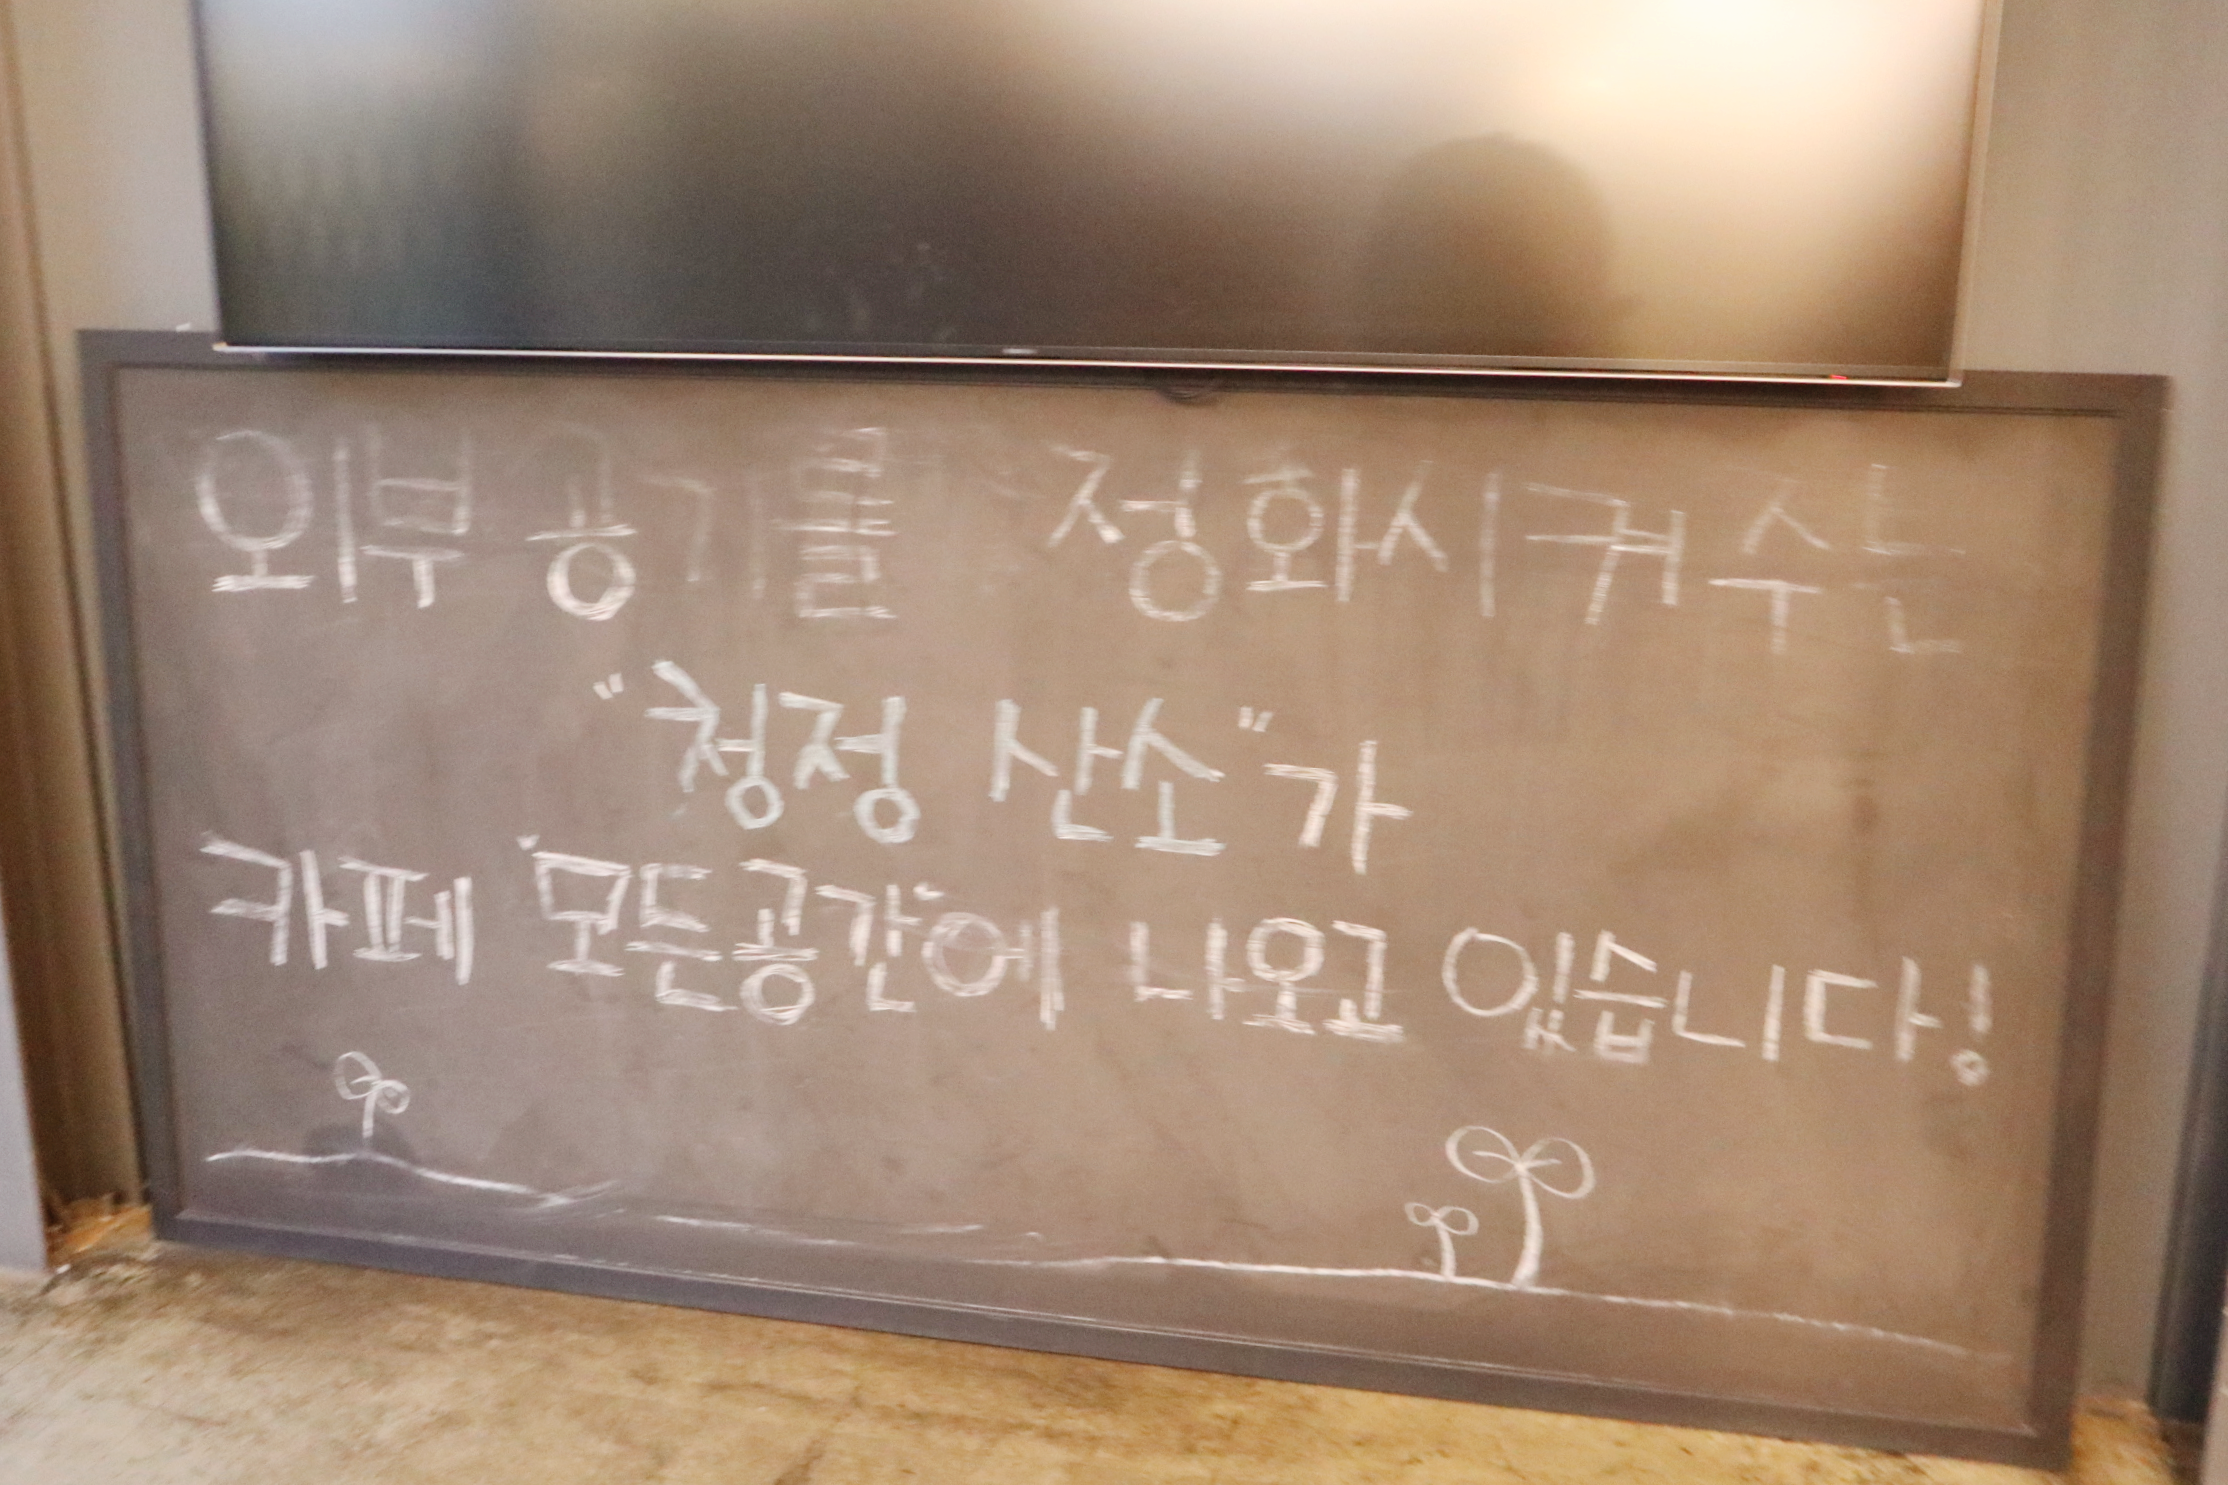 외부 공기를 정화시켜 주는
"청정 산소"가
카페 "모든공간"에 나오고 있습니다!